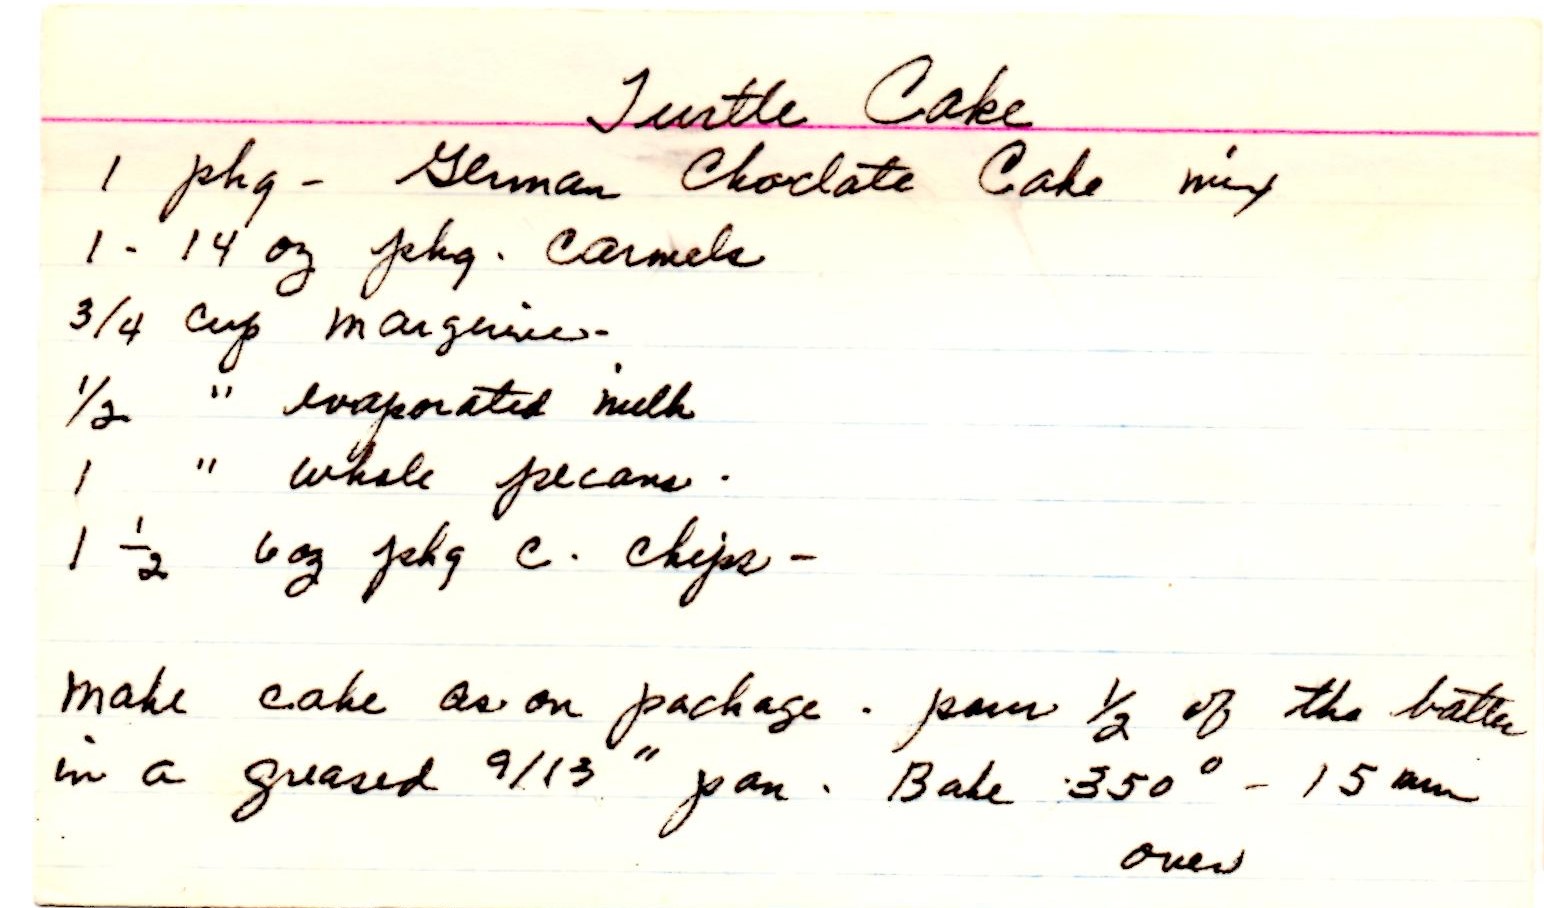 Turtle Cake
1 pkg - German Choclate Cake mix
1 - 14 oz pkg. Carmels
3/4 cup margerine -
1/2 " evaporated milk
1 " whole pecans.
1 1/2 6 oz pkg C. chips -
Make cake as on package. pour 1/2 of the batter
in a greased 9/13" pan. Bake 350° - 15 min
over